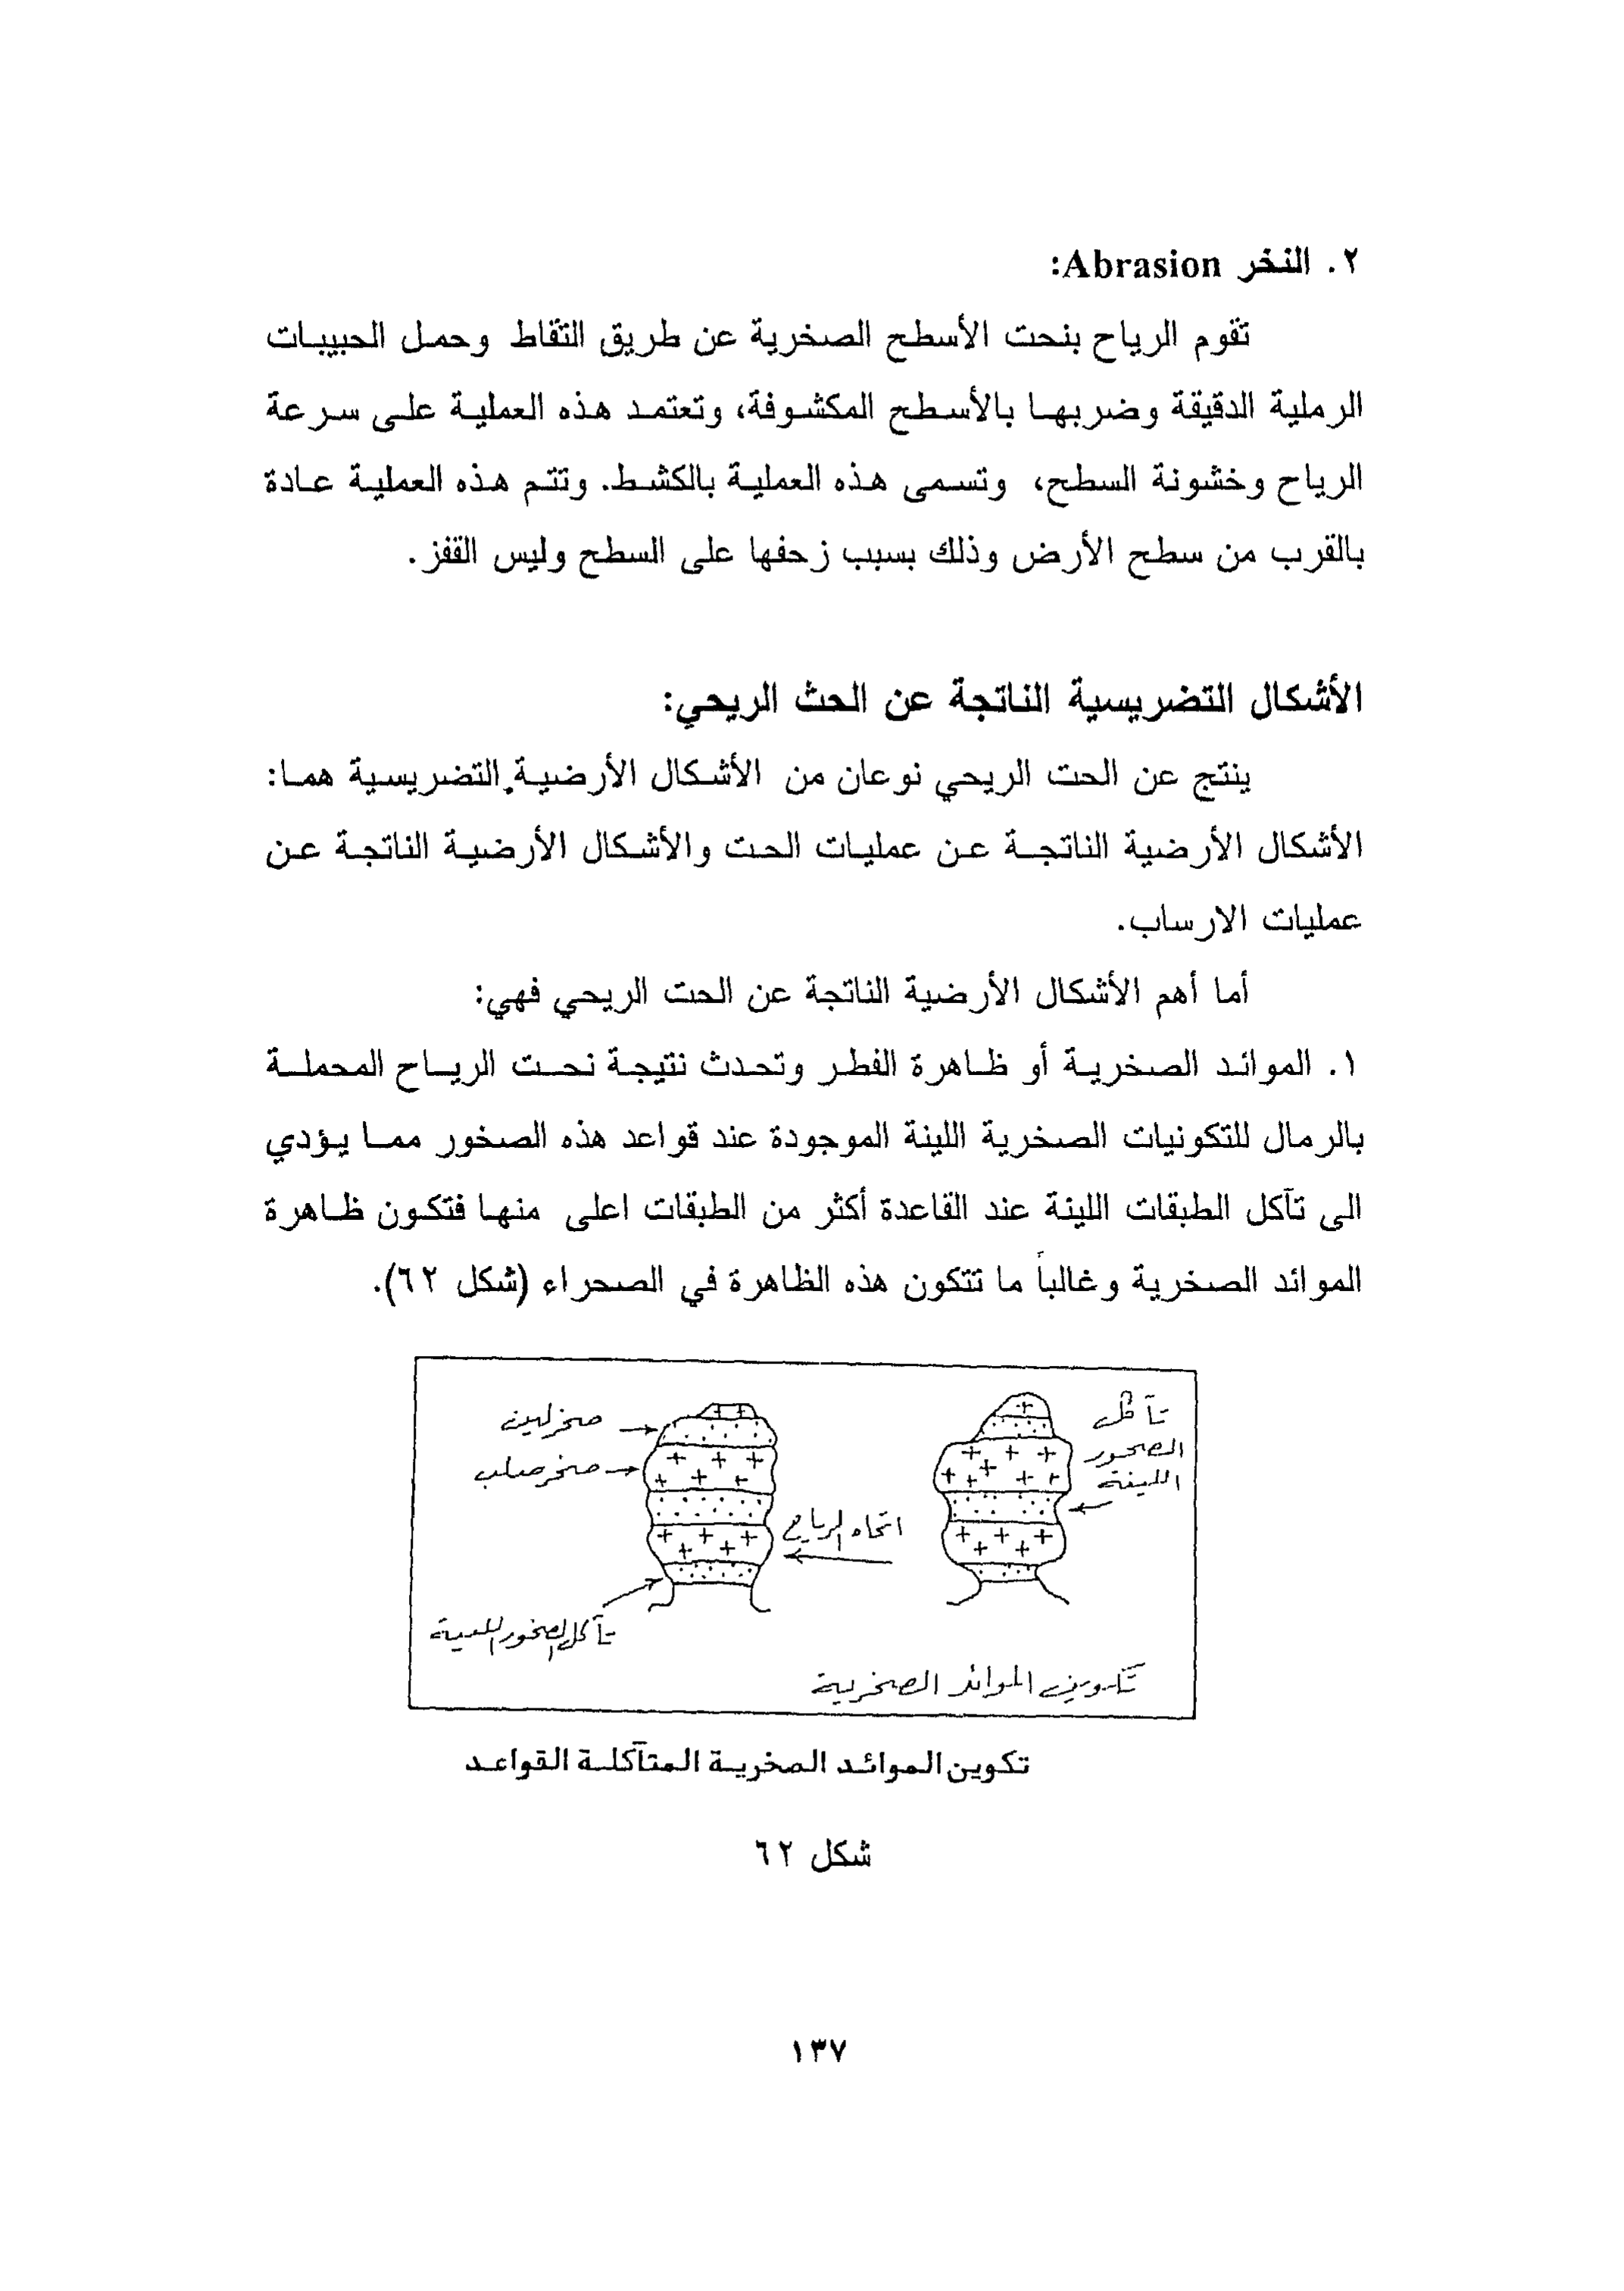 ٢. النخر Abrasion:
تقوم الرياح بنحت الأسطح الصخرية عن طريق التقاط وحمل الحبيبات
الرملية الدقيقة وضربها بالأسطح المكشوفة، وتعتمد هذه العملية على سرعة
الرياح وخشونة السطح، وتسمى هذه العملية بالكشط. وتتم هذه العملية عادة
بالقرب من سطح الأرض وذلك بسبب زحفها على السطح وليس القفز.
الأشكال التضريسية الناتجة عن الحث الريحي:
ينتج عن الحت الريحي نوعان من الأشكال الأرضية التضريسية هما:
الأشكال الأرضية الناتجة عن عمليات الحت والأشكال الأرضية الناتجة عن
عمليات الارساب.
أما أهم الأشكال الأرضية الناتجة عن الحت الريحي فهي:
١. الموائد الصخرية أو ظاهرة الفطر وتحدث نتيجة نحت الرياح المحملة
بالرمال للتكونيات الصخرية اللينة الموجودة عند قواعد هذه الصخور مما يؤدي
الى تآكل الطبقات اللينة عند القاعدة أكثر من الطبقات اعلى منها فتكون ظاهرة
الموائد الصخرية وغالباً ما تتكون هذه الظاهرة في الصحراء (شكل ٦٢).
تآكل
الصخور
اللينة
صخر لين
صخر صلب
اتجاه الرياح
تآكل الصخور اللينة
تكوين الموائد الصخرية
تكوين الموائد الصخرية المتآكلة القواعد
شكل ٦٢
١٣٧